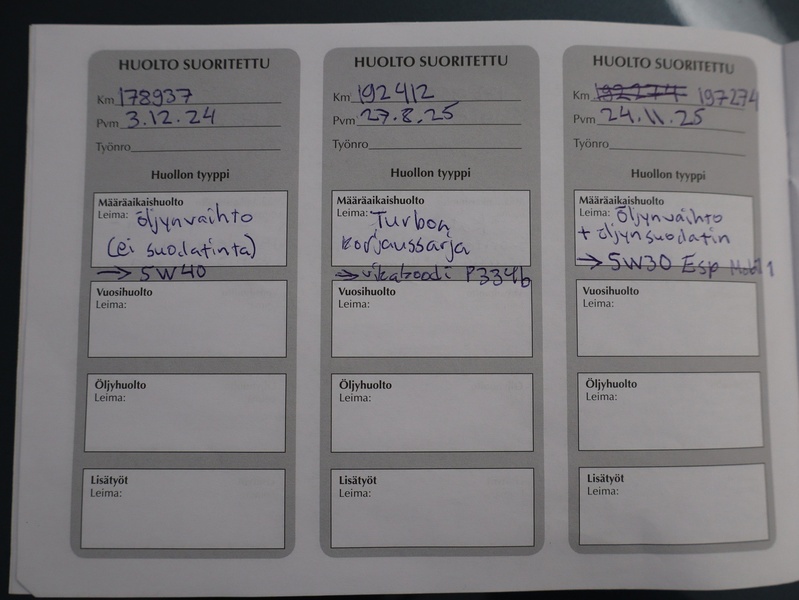 HUOLTO SUORITETTU
Km 178937
Pvm 3.12.24
Työnro
Huollon tyyppi
Määräaikaishuolto
Leima: öljynvaihto
(ei suodatinta)
→ 5W40
Vuosihuolto
Leima:
Öljyhuolto
Leima:
Lisätyöt
Leima:
HUOLTO SUORITETTU
Km 192412
Pvm 27.8.25
Työnro
Huollon tyyppi
Määräaikaishuolto
Leima: Turbon
korjaussarja
→ vikakoodi P334b
Vuosihuolto
Leima:
Öljyhuolto
Leima:
Lisätyöt
Leima:
HUOLTO SUORITETTU
Km 192274 197274
Pvm 24.11.25
Työnro
Huollon tyyppi
Määräaikaishuolto
Leima: Öljynvaihto
+ öljynsuodatin
→ 5W30 Esp Mobil 1
Vuosihuolto
Leima:
Öljyhuolto
Leima:
Lisätyöt
Leima: